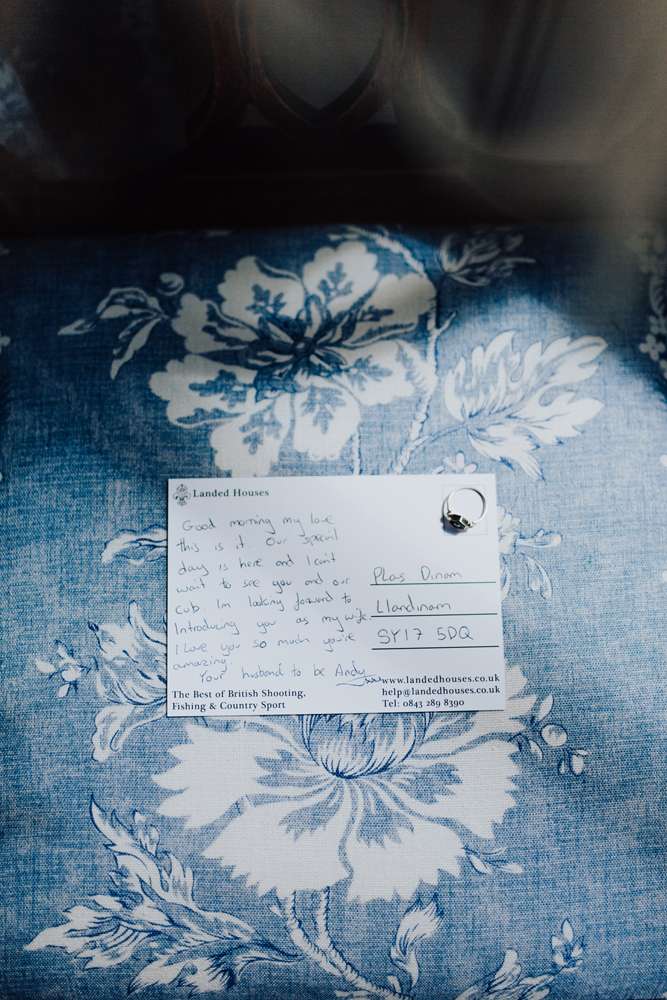 Landed Houses
Good morning my love
this is it. Our special
day is here and I can't
wait to see you and our
cub. Im looking forward to
Introducing you as my wife.
I Love you so much you're
amazing
Your husband to be Andy
Plas Dinam
Llandinam
SY17 5DQ
The Best of British Shooting,
Fishing & Country Sport
www.landedhouses.co.uk
help@landedhouses.co.uk
Tel: 0843 289 8390